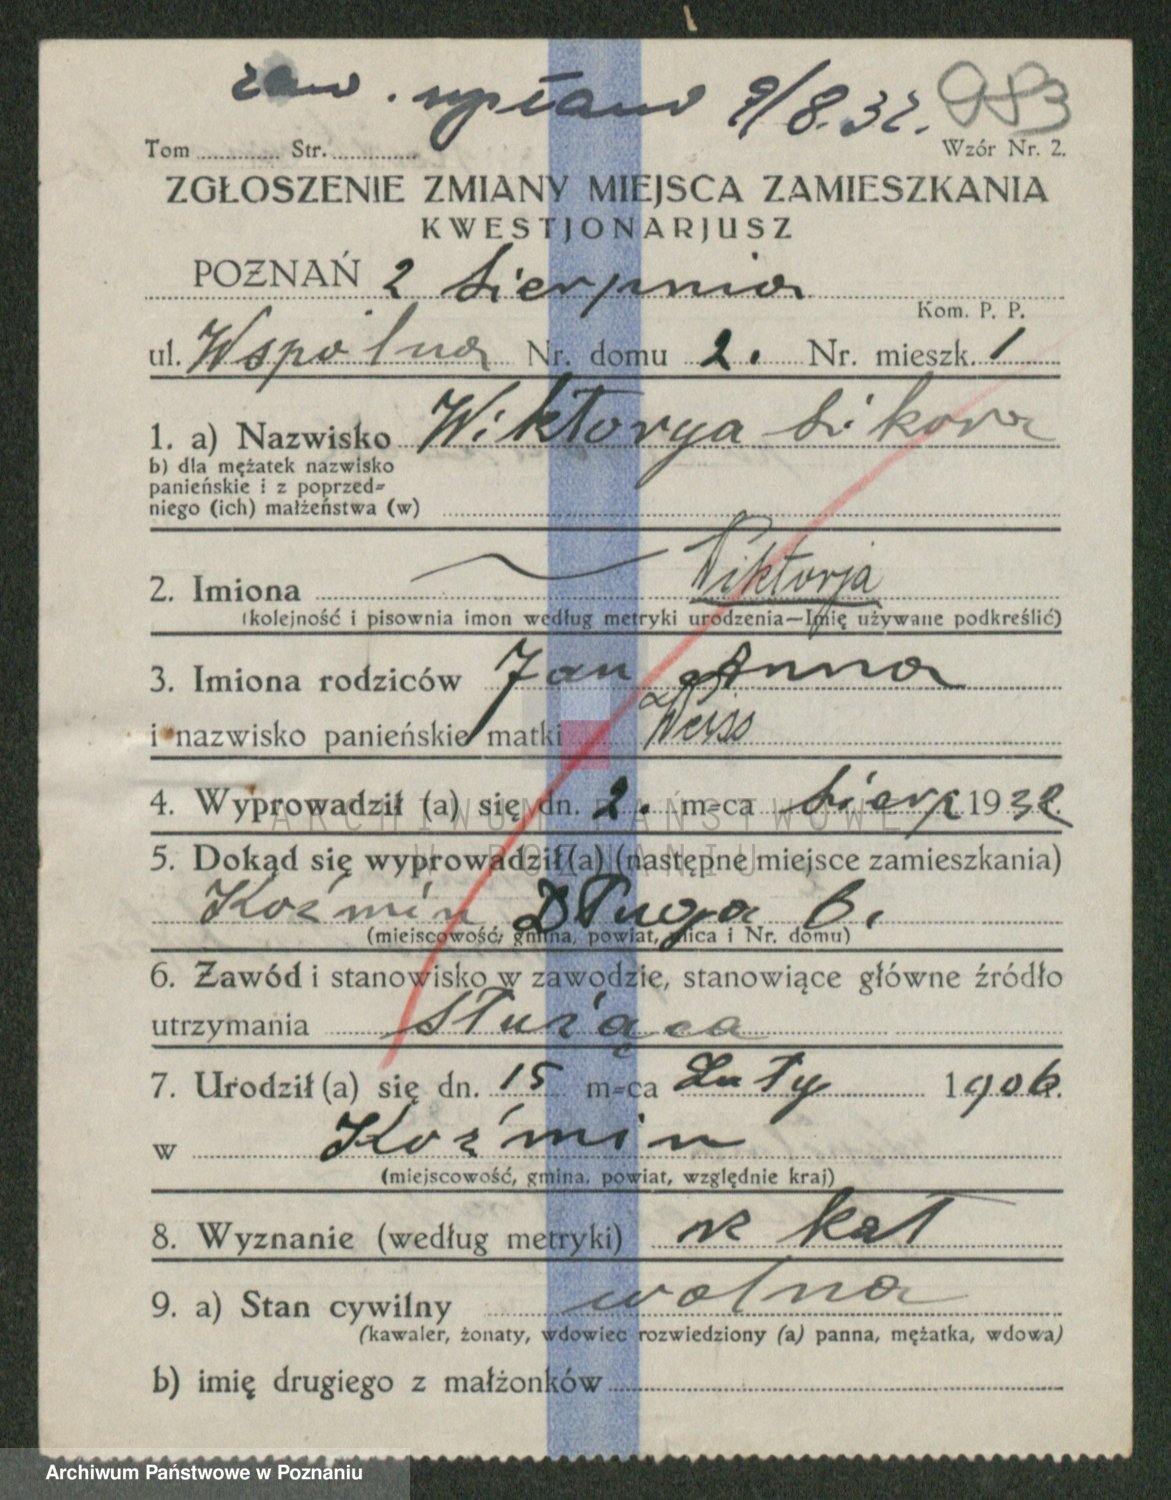 zaw. wpław 9/8.32. 983
Tom ............ Str. ............ Wzór Nr. 2.
ZGŁOSZENIE ZMIANY MIEJSCA ZAMIESZKANIA
KWESTJONARJUSZ
POZNAŃ 2 Sierpnia
Kom. P. P.
ul. Wspólna Nr. domu 2. Nr. mieszk. 1
1. a) Nazwisko Wiktorya Sikora
b) dla mężatek nazwisko
panieńskie i z poprzed=
niego (ich) małżeństwa (w)
2. Imiona Wiktorja
(kolejność i pisownia imon według metryki urodzenia—Imię używane podkreślić)
3. Imiona rodziców Jan Anna
i nazwisko panieńskie matki Weiss
4. Wyprowadził (a) się dn. 2. m=ca Sierp 1932.
ARCHIWUM PAŃSTWOWE
W POZNANIU
5. Dokąd się wyprowadził(a) (następne miejsce zamieszkania)
Koźmin Długa 6.
(miejscowość, gmina, powiat, ulica i Nr. domu)
6. Zawód i stanowisko w zawodzie, stanowiące główne źródło
utrzymania Służąca
7. Urodził (a) się dn. 15 m=ca Luty 1906.
w Koźmin
(miejscowość, gmina, powiat, względnie kraj)
8. Wyznanie (według metryki) rz kat
9. a) Stan cywilny wolna
(kawaler, żonaty, wdowiec rozwiedziony (a) panna, mężatka, wdowa)
b) imię drugiego z małżonków
Archiwum Państwowe w Poznaniu